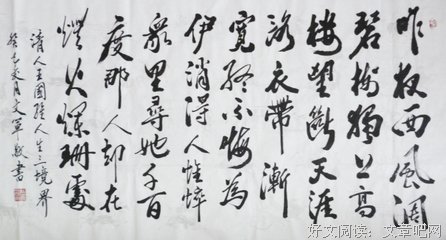 昨夜西風凋
碧樹獨上高
樓望斷天涯
路衣帶漸
寬終不悔為
伊消得人憔悴
眾里尋她千百
度那人却在
燈火爛珊處
清人王國維人生三境界
癸巳夏月文軍敬書
好文阅读：文章吧网